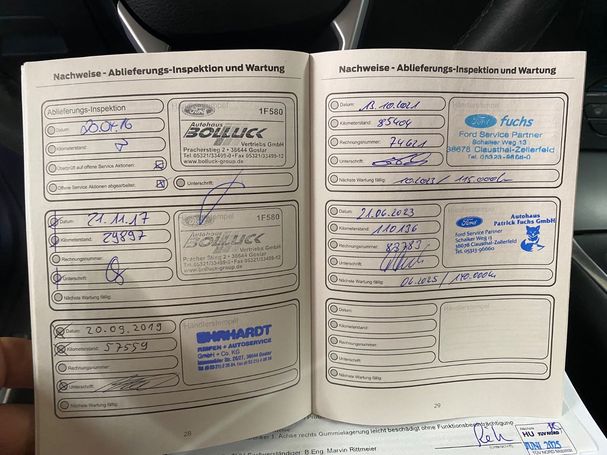 Nachweise - Ablieferungs-Inspektion und Wartung
Ablieferungs-Inspektion
Datum:
Kilometerstand:
Überprüft auf offene Service Aktionen:
Offene Service Aktionen abgearbeitet:
Händlerstempel
Ford
1F580
Autohaus
BOLLUCK
Vertriebs GmbH
Pracherstieg 2 • 38644 Goslar
Tel. 05321/33499-0 • Fax 05321/33499-12
www.bolluck-group.de
Unterschrift:
Datum: 21.11.17
Kilometerstand: 29897
Rechnungsnummer:
Unterschrift:
Nächste Wartung fällig:
Ford
1F580
Autohaus
BOLLUCK
Vertriebs GmbH
www.bolluck-group.de
Datum: 20.09.2019
Kilometerstand: 57559
Rechnungsnummer:
Unterschrift:
Nächste Wartung fällig:
Händlerstempel
EHRHARDT
REIFEN + AUTOSERVICE
GmbH + Co. KG
28
Nachweise - Ablieferungs-Inspektion und Wartung
Datum: 13.10.2021
Kilometerstand: 85404
Rechnungsnummer: 74621
Unterschrift:
Nächste Wartung fällig: 10.2023 / 115.000km
Ford fuchs
Ford Service Partner
Schalker Weg 13
38678 Clausthal-Zellerfeld
Datum: 21.06.2023
Kilometerstand: 110136
Rechnungsnummer: 83783
Unterschrift:
Nächste Wartung fällig: 06.2025 / 140.000km
Ford
Autohaus
Patrick Fuchs GmbH
Ford Service Partner
Schalker Weg 13
38678 Clausthal-Zellerfeld
Datum:
Kilometerstand:
Rechnungsnummer:
Unterschrift:
Nächste Wartung fällig:
Händlerstempel
29
1. Achse rechts Gummielagerung leicht beschädigt ohne Funktionsbeeinträchtigung
B.Eng. Marvin Rittmeier
HU
TÜV NORD
JUNI 2025